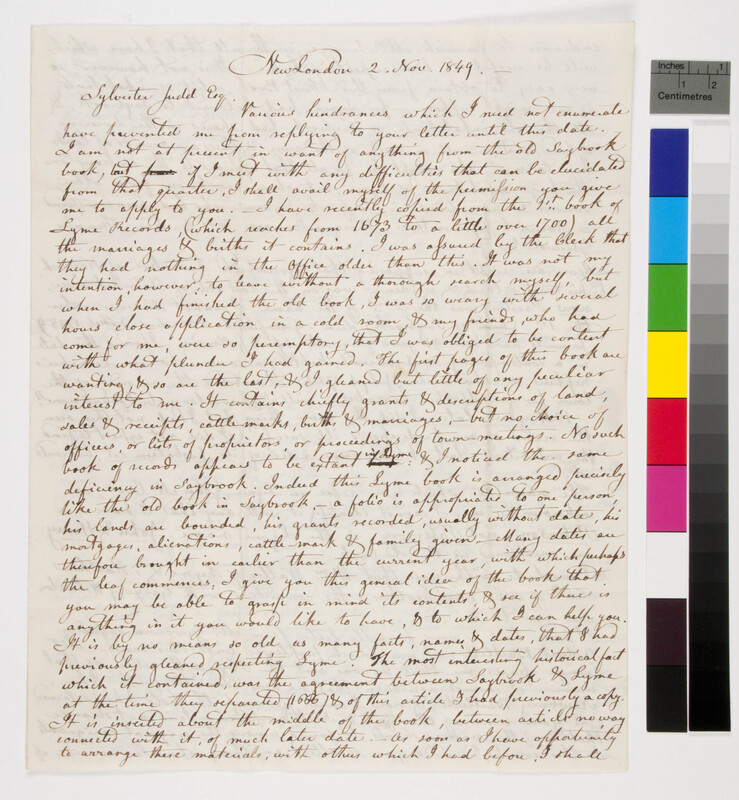 New London 2. Nov. 1849. —
Sylvester Judd Esq.
Various hindrances which I need not enumerate
have prevented me from replying to your letter until this date.
I am not at present in want of anything from the old Saybrook
book, but if I meet with any difficulties that can be elucidated
from that quarter, I shall avail myself of the permission you give
me to apply to you. — I have recently copied from the 1st. book of
Lyme Records, (which reaches from 1673 to a little over 1700) all
the marriages & births it contains. I was assured by the Clerk that
they had nothing in the Office older than this. It was not my
intention, however, to leave without a thorough search myself, but
when I had finished the old book, I was so weary with several
hours close application in a cold room, & my friends, who had
come for me, were so peremptory, that I was obliged to be content
with what plunder I had gained. The first pages of this book are
wanting, & so are the last, & I gleaned but little of any peculiar
interest to me. It contains chiefly grants & descriptions of land,
sales & receipts, cattle marks, births, & marriages, — but no choice of
officers, or lists of proprietors, or proceedings of town-meetings. No such
book of records appears to be extant in Lyme: & I noticed the same
deficiency in Saybrook. Indeed this Lyme book is arranged precisely
like the old book in Saybrook, — a folio is appropriated to one person,
his lands are bounded, his grants recorded, usually without date, his
mortgages, alienations, cattle mark & family given. — Many dates are
therefore brought in earlier than the current year, with which perhaps
the leaf commences. I give you this general idea of the book that
you may be able to grasp in mind its contents, & see if there is
anything in it you would like to have, & to which I can help you.
It is by no means so old as many facts, names & dates, that I had
previously gleaned respecting Lyme. The most interesting historical fact
which it contained, was the agreement between Saybrook & Lyme
at the time they separated (1666) & of this article I had previously a copy.
It is inserted about the middle of the book, between articles no way
connected with it, of much later date. — As soon as I have opportunity
to arrange these materials, with others which I had before, I shall
Inches 1
1 2
Centimetres